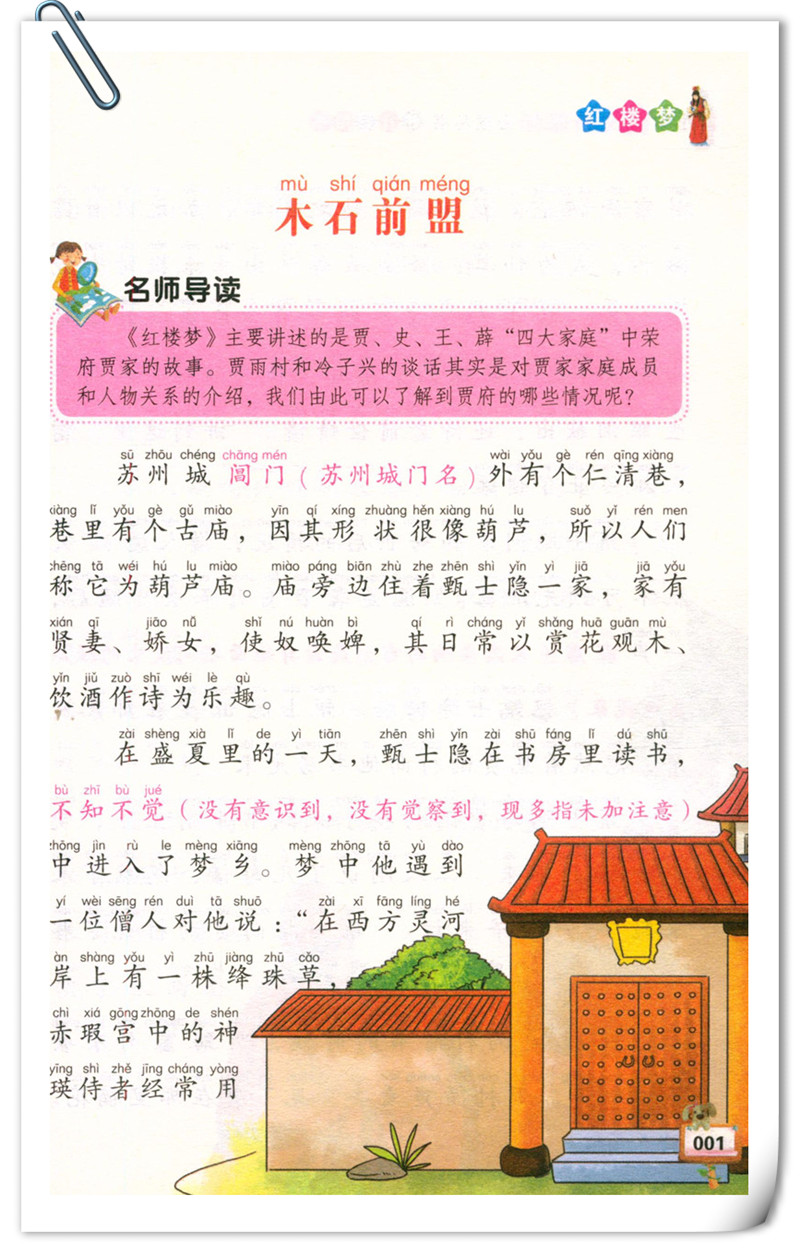 红楼梦
mù shí qián méng
木石前盟
名师导读
《红楼梦》主要讲述的是贾、史、王、薜“四大家庭”中荣
府贾家的故事。贾雨村和冷子兴的谈话其实是对贾家家庭成员
和人物关系的介绍，我们由此可以了解到贾府的哪些情况呢？
sū zhōu chéng chāng mén wài yǒu gè rén qīng xiàng
苏州城阊门（苏州城门名）外有个仁清巷，
xiàng lǐ yǒu gè gǔ miào yīn qí xíng zhuàng hěn xiàng hú lu suǒ yǐ rén men
巷里有个古庙，因其形状很像葫芦，所以人们
chēng tā wéi hú lu miào miào páng biān zhù zhe zhēn shì yǐn yì jiā jiā yǒu
称它为葫芦庙。庙旁边住着甄士隐一家，家有
xián qī jiāo nǚ shǐ nú huàn bì qí rì cháng yǐ shǎng huā guān mù
贤妻、娇女，使奴唤婢，其日常以赏花观木、
yǐn jiǔ zuò shī wéi lè qù
饮酒作诗为乐趣。
zài shèng xià lǐ de yì tiān zhēn shì yǐn zài shū fáng lǐ dú shū
在盛夏里的一天，甄士隐在书房里读书，
bù zhī bù jué
不知不觉（没有意识到，没有觉察到，现多指未加注意）
zhōng jìn rù le mèng xiāng mèng zhōng tā yù dào
中进入了梦乡。梦中他遇到
yí wèi sēng rén duì tā shuō zài xī fāng líng hé
一位僧人对他说：“在西方灵河
àn shàng yǒu yì zhū jiàng zhū cǎo
岸上有一株绛珠草，
chì xiá gōng zhōng de shén
赤瑕宫中的神
yīng shì zhě jīng cháng yòng
瑛侍者经常用
001